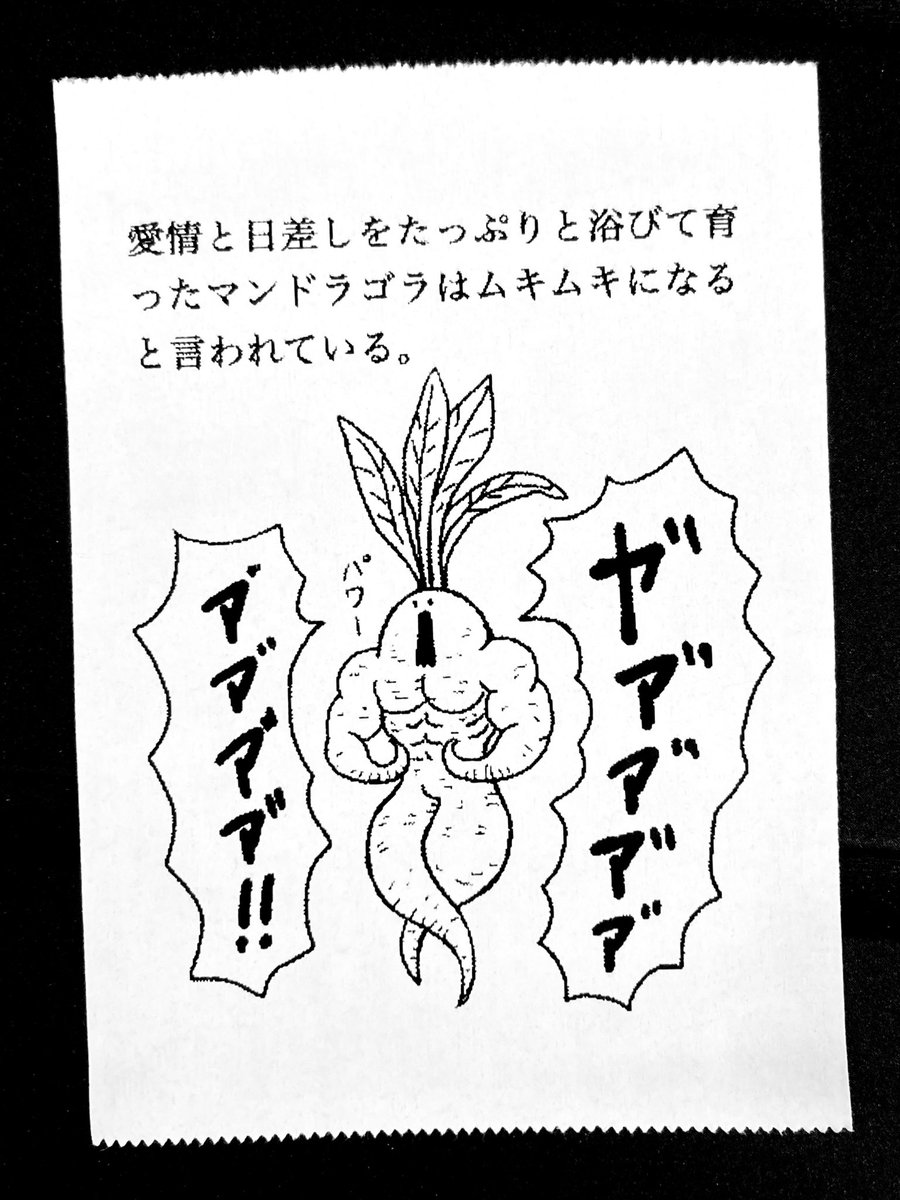 愛情と日差しをたっぷりと浴びて育
ったマンドラゴラはムキムキになる
と言われている。
ギア゙ア゙ア゙ア゙
パワー
ア゙ア゙ア゙ア゙!!